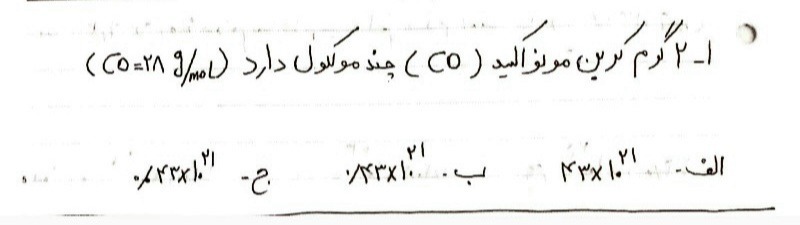 ۱- ۲ گرم کربن مونو اکسید (CO) چند مولکول دارد (CO=۲۸ g/mol)
الف- ۴۳×۱۰^۲۱ ب- ۰/۴۳×۱۰^۲۱ ج- ۰/۰۴۳×۱۰^۲۱